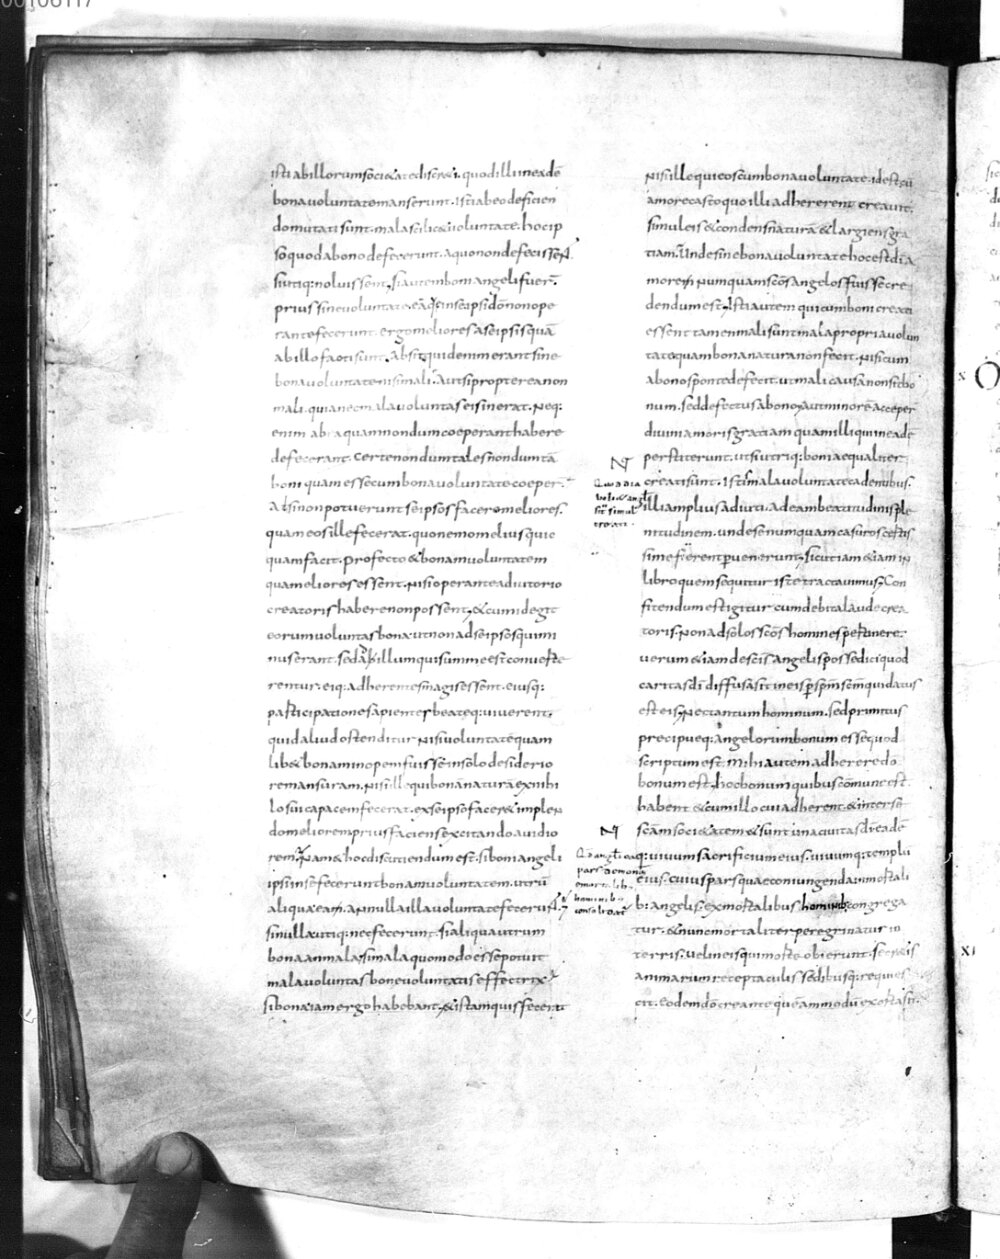 00106117
isti ab illorum societate discreti. quod illi in eadē
bona uoluntate manserunt. Isti ab eo deficien
do mutati sunt. mala scilicet uoluntate. hoc ip
so quod a bono defecerunt. a quo non defecissent
si utiq; noluissent. Si autem boni angeli fuer̄
prius sine uoluntate
rante fecerunt. ergo meliores a se ipsis quā
ab illo facti sunt. Absit quid enim erant sine
bona uoluntate nisi mali. Aut si propterea non
mali. quia nec mala uoluntas eis inerat. Neq;
enim ab ea quam nondum coeperant habere
defecerant. Certe nondum tales nondum tā
boni quam esse cum bona uoluntate coeper̄
At si non potuerunt se ipsos facere meliores.
quam eos ille fecerat. quo nemo melius quic
quam facit. profecto & bonam uoluntatem
qua meliores essent. nisi operante adiutorio
creatoris habere non possent. & cum id egit
eorum uoluntas bona ut non ad se ipsos qui mi
nus erant. sed ad illum qui summe est conuerte
rentur. eiq; adherentes magis essent. eiusq;
participatione sapienter beateq; uiuerent.
quid aliud ostenditur nisi uoluntatē quam
libet bonam inopem fuisse in solo desiderio
remansuram. nisi ille qui bonā naturā ex nihi
lo sui capacem fecerat. ex se ipso faceret implen
do meliorem prius faciens excitando auidio
rem. Nam & hoc discutiendum est. si boni angeli
ipsi in se fecerunt bonam uoluntatem. utrū
aliqua eam. an nulla illa uoluntate fecerunt.
si nulla utiq; nec fecerunt. si aliqua utrum
bona an mala. si mala quomodo esse potuit
mala uoluntas bone uoluntatis effectrix
si bona iam ergo habebant. & istam quis fecerat
nisi ille qui eos cum bona uoluntate. id est cū
amore casto quo illi adhererent creauit.
simul eis & condens naturā & largiens gra
tiam. Unde sine bona uoluntate hoc est di a
more nunquam scōs angelos fuisse cre
dendum est. Isti autem qui cum boni creati
essent tamen mali sunt mala propria uolun
tate quam bona natura non fecit. nisi cum
a bono sponte defecit. ut mali causa non sit bo
num. sed defectus a bono. aut minorē acceper
diuini amoris gratiam quam illi qui in eadē
perstiterunt. ut si utriq; boni aequaliter
creati sunt. Isti mala uoluntate cadentibus.
illi amplius adiuti. ad eam beatitudinis ple
nitudinem. unde se nunquam casuros certis
simi fierent peruenerunt. sicut iam etiam in
libro quem sequitur iste tractauimus. Con
fitendum est igitur cum debita laude crea
toris. Non ad solos scōs homines pertinere.
uerum etiam de scīs angelis posse dici quod
caritas dī diffusa sit in eis p sp̄m scm̄ qui datus
est eis. Nec tantum hominum. sed primitus
precipueq; angelorum bonum esse quod
scriptum est. Mihi autem adherere dō
bonum est. hoc bonum quibus cōmune est
habent & cum illo cui adherent. & inter se
scām societatem & sunt una ciuitas dī eadē
q; uiuum sacrificium eius. uiuumq; templū
eius. cuius pars quae coniungenda immortali
b; angelis ex mortalibus hominib; congrega
tur. & nunc mortaliter peregrinatur in
terris. uel in eis qui morte obierunt. secretis
animarum receptaculis sedibusq; requies
cit. eodem dō creante quēammodū exorta sit.
Quod dia
boli & angli
sīt simul
creati
XI